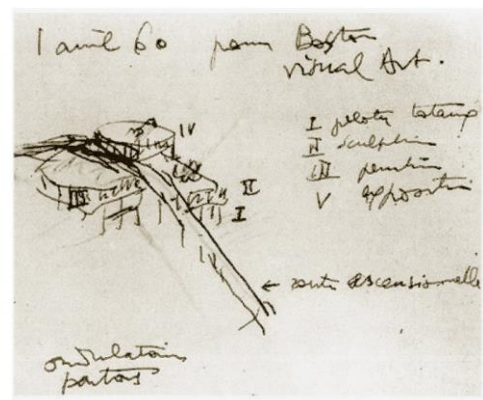 1 avril 60 pour Boston
visual Art.
I pilotis
II sculpture
III peinture
V exposition
IV
III
II
I
← route ascensionnelle
ondulatoires
partout